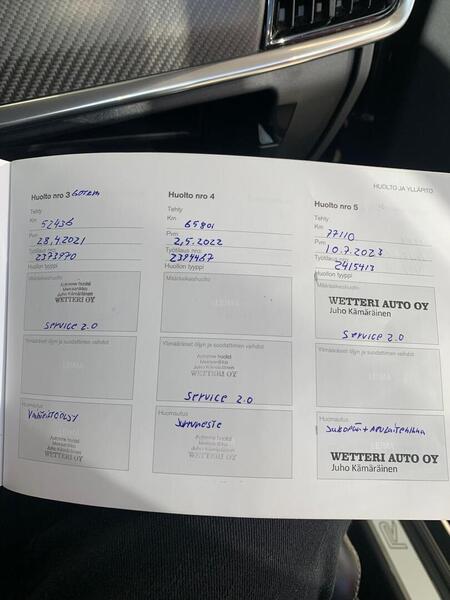 HUOLTO JA YLLÄPITO
Huolto nro 3
Tehty
Km
52436
Pvm
28,4.2021
Työtilaus nro:
2373970
Huollon tyyppi
Määräaikaishuolto
Juho Kämäräinen
WETTERI OY
Service 2.0
Ylimääräiset öljyn ja suodattimen vaihdot
Huomautus
Juho Kämäräinen
WETTERI OY
Huolto nro 4
Tehty
Km
65801
Pvm
2,5.2022
Työtilaus nro:
2394467
Huollon tyyppi
Määräaikaishuolto
Ylimääräiset öljyn ja suodattimen vaihdot
Automme huolsi
Juho Kämäräinen
WETTERI OY
Service 2.0
Huomautus
Jarruneste
Automme huolsi
Juho Kämäräinen
WETTERI OY
Huolto nro 5
Tehty
Km
77110
Pvm
10.7.2023
Työtilaus nro:
2415413
Huollon tyyppi
Määräaikaishuolto
WETTERI AUTO OY
Juho Kämäräinen
Service 2.0
Ylimääräiset öljyn ja suodattimen vaihdot
Huomautus
WETTERI AUTO OY
Juho Kämäräinen